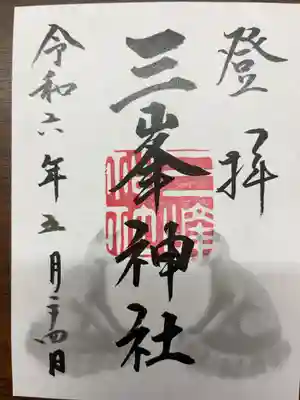 登拝
三峯神社
令和六年五月二十四日